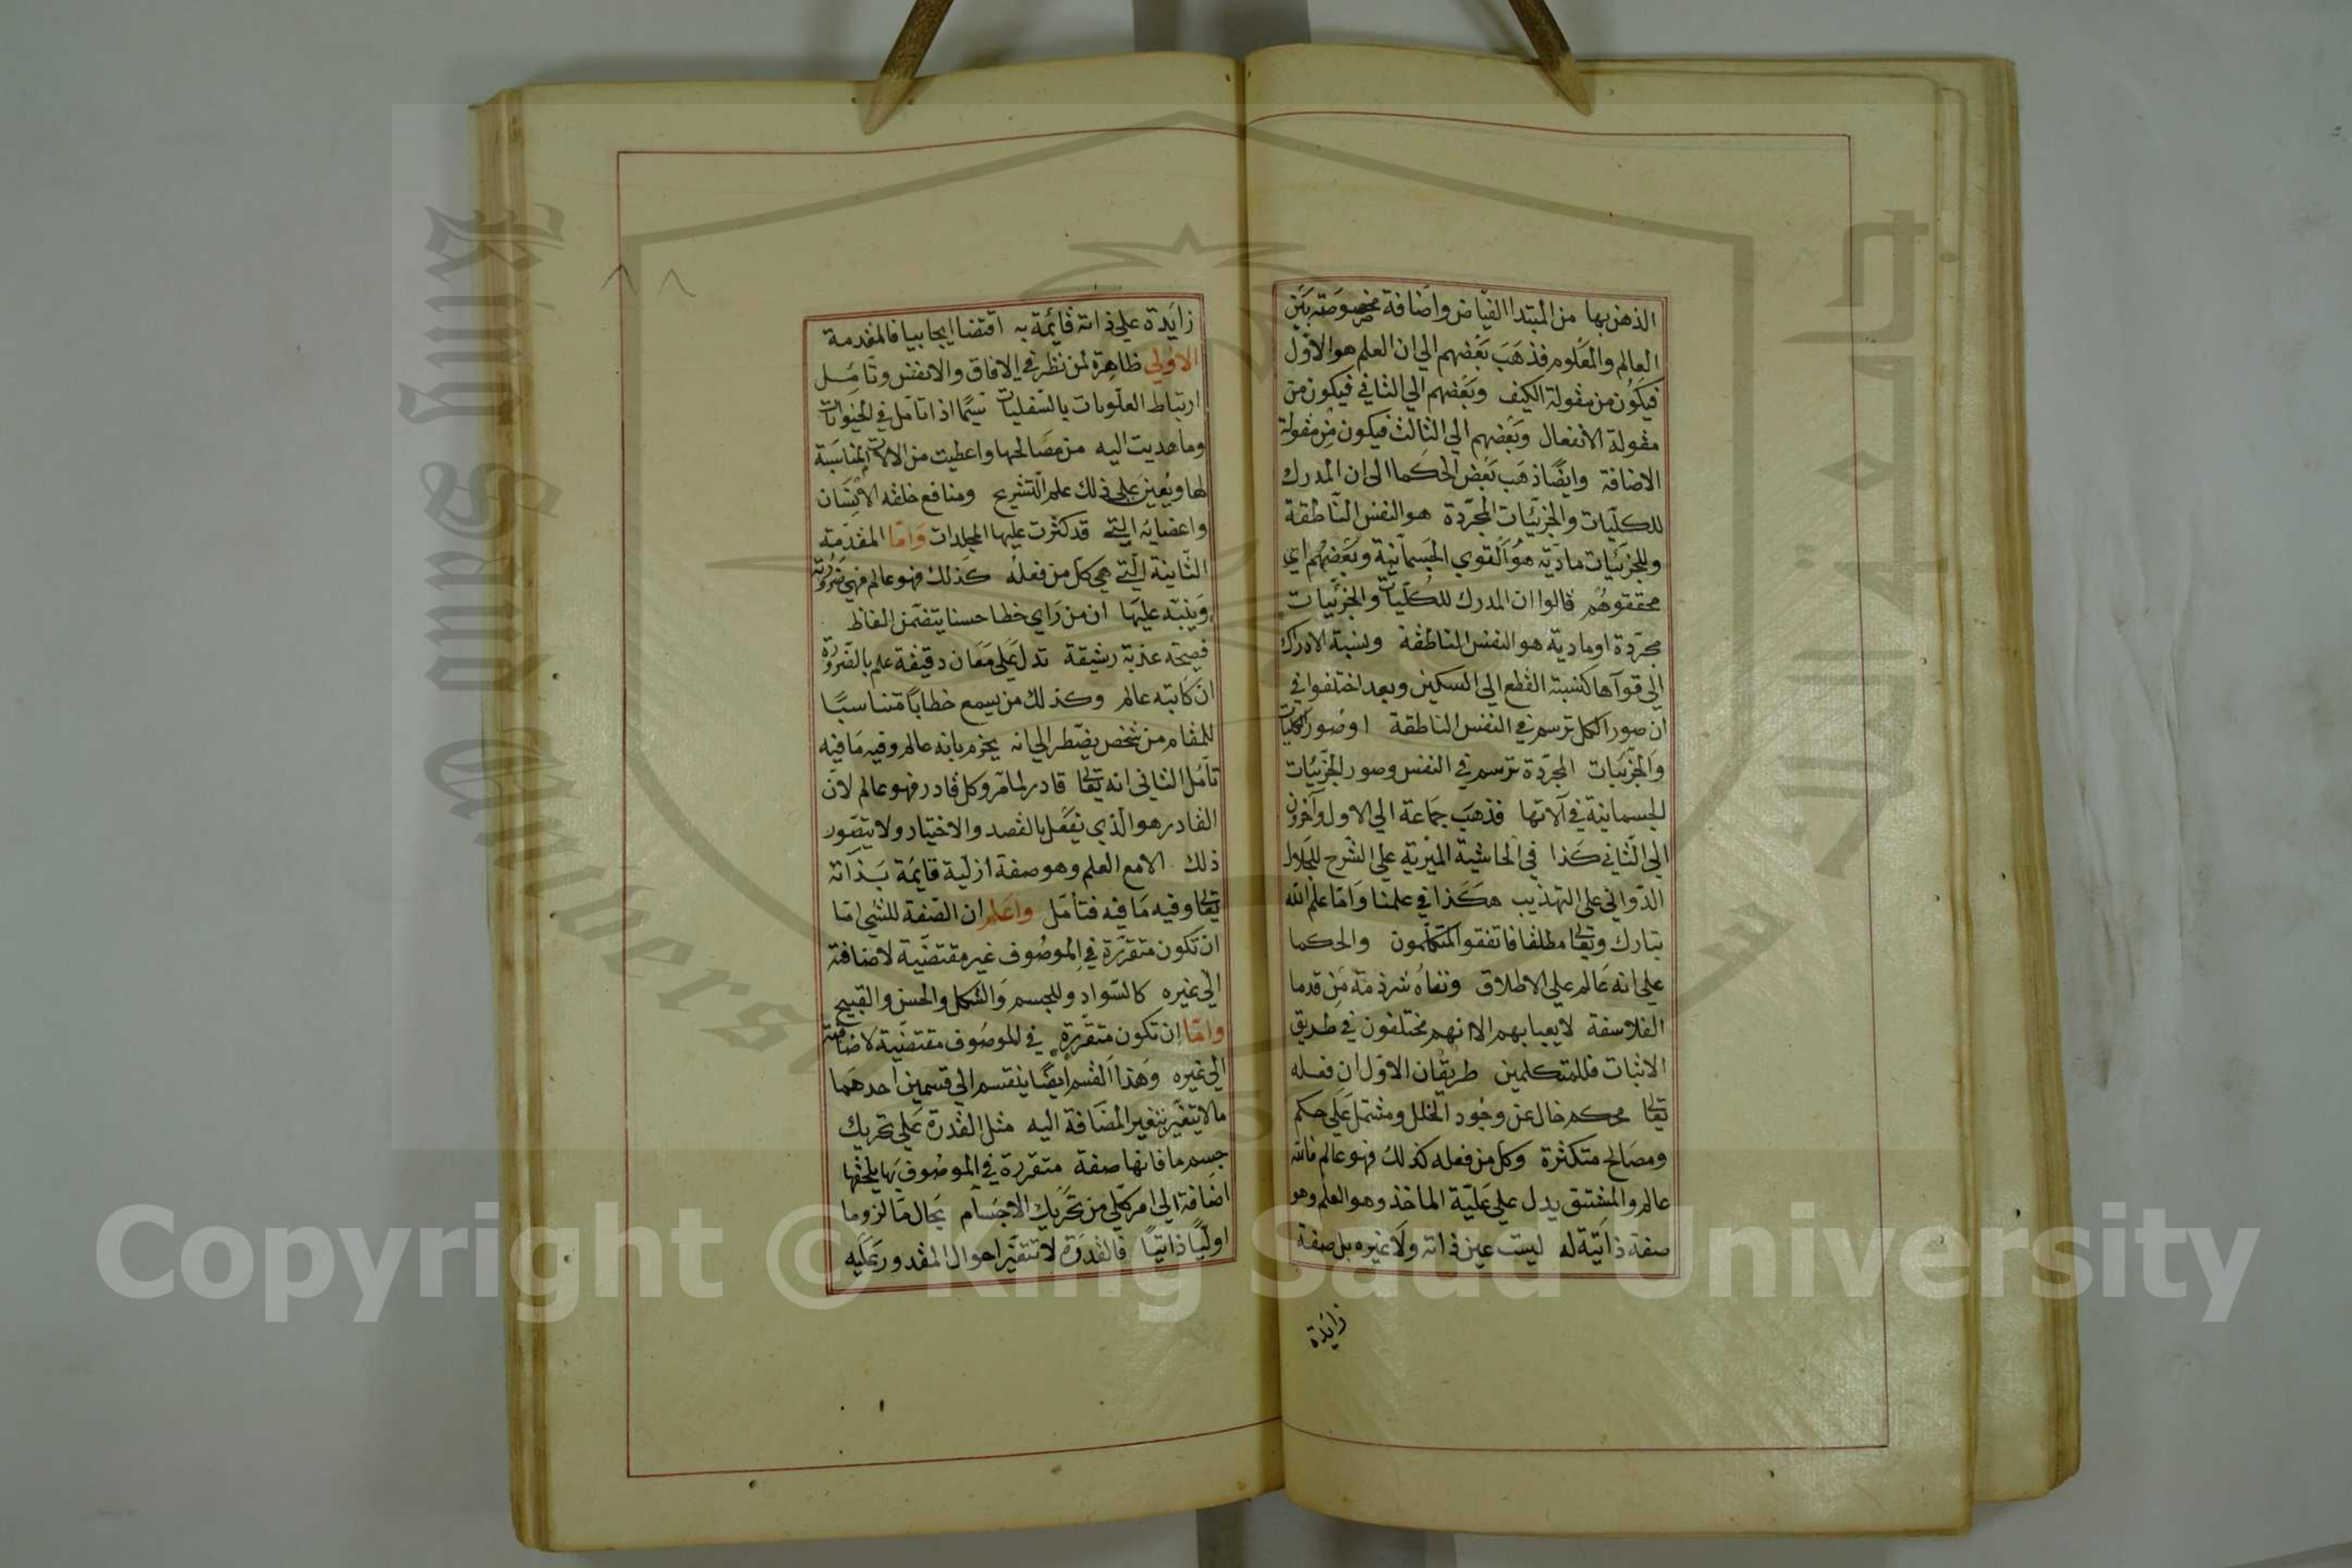 الذهن بها من المبتدا الفياض واضافة مخصوصة بين
العالم والمعلوم فذهب بعضهم الي ان العلم هو الاول
فيكون من مقولة الكيف وبعضهم الي الثاني فيكون من
مقولة الانفعال وبعضهم الي الثالث فيكون من مقولة
الاضافة وايضا ذهب بعض الحكما الى ان المدرك
للكليات والجزئيات المجردة هو النفس الناطقة
وللجزئيات مادية هو القوي الجسمانية وبعضهم اي
محققوهم قالوا ان المدرك للكليات والجزئيات
مجردة او مادية هو النفس الناطقة ونسبة الادراك
الي قواها كنسبة القطع الي السكين وبعد اختلفوا في
ان صور الكل ترسم في النفس الناطقة او صور الكليات
والجزئيات المجردة ترسم في النفس وصور الجزئيات
الجسمانية في آلاتها فذهب جماعة الي الاول وآخرون
الي الثاني كذا في الحاشية الميرية علي الشرح للجلال
الدواني على التهذيب هكذا في علمنا واما علم الله
تبارك وتعالى مطلقا فاتفقوا المتكلمون والحكما
علي انه عالم علي الاطلاق ونفاه شرذمة من قدما
الفلاسفة لا يعبا بهم الا انهم مختلفون في طريق
الاثبات فللمتكلمين طريقان الاول ان فعله
تعالى محكم خال عن وجود الخلل ومشتمل علي حكم
ومصالح متكثرة وكل من فعله كذلك فهو عالم فالله
عالم والمشتق يدل علي علية الماخذ وهو العلم وهو
صفة ذاتية له ليست عين ذاته ولا غيره بل صفة
زائدة
زايدة علي ذاته قائمة به اقتضا ايجابيا فالمقدمة
الاولي ظاهرة لمن نظر في الافاق والانفس وتامل
ارتباط العلويات بالسفليات سيما اذا تامل في الحيوانات
وما هديت اليه من مصالحها واعطيت من الالات المناسبة
لها ويعين علي ذلك علم التشريح ومنافع خلقه الانسان
واعضايه التي قد كثرت عليها المجلدات واما المقدمة
الثانية التي هي كل من فعله كذلك فهو عالم فهي ضرورية
وينبه عليها ان من راي خطا حسنا يتضمن الفاظ
فصيحة عذبة رشيقة تدل علي معان دقيقة علم بالضرورة
ان كاتبه عالم وكذلك من يسمع خطابا متناسبا
للمقام من شخص يضطر الي انه يجزم بانه عالم وفيه ما فيه
تامل الثاني انه تعالى قادر لما مر وكل قادر فهو عالم لان
القادر هو الذي يفعل بالقصد والاختيار ولا يتصور
ذلك الا مع العلم وهو صفة ازلية قايمة بذاته
تعالى وفيه ما فيه فتامل واعلم ان الصفة للشي اما
ان تكون متقررة في الموصوف غير مقتضية لاضافته
الي غيره كالسواد وللجسم والشكل والحسن والقبيح
واما ان تكون متقررة في الموصوف مقتضية لاضافته
الي غيره وهذا القسم ايضا ينقسم الي قسمين احدهما
ما لا يتغير بتغير المضافة اليه مثل القدرة علي تحريك
جسم ما فانها صفة متقررة في الموصوف بها يلحقها
اضافة الي امر كلي من تحريك الاجسام بحال ما لزوما
اوليا ذاتيا فالقدرة لا تتغير احوال المقدور عليه
King Saud University
Copyright © King Saud University